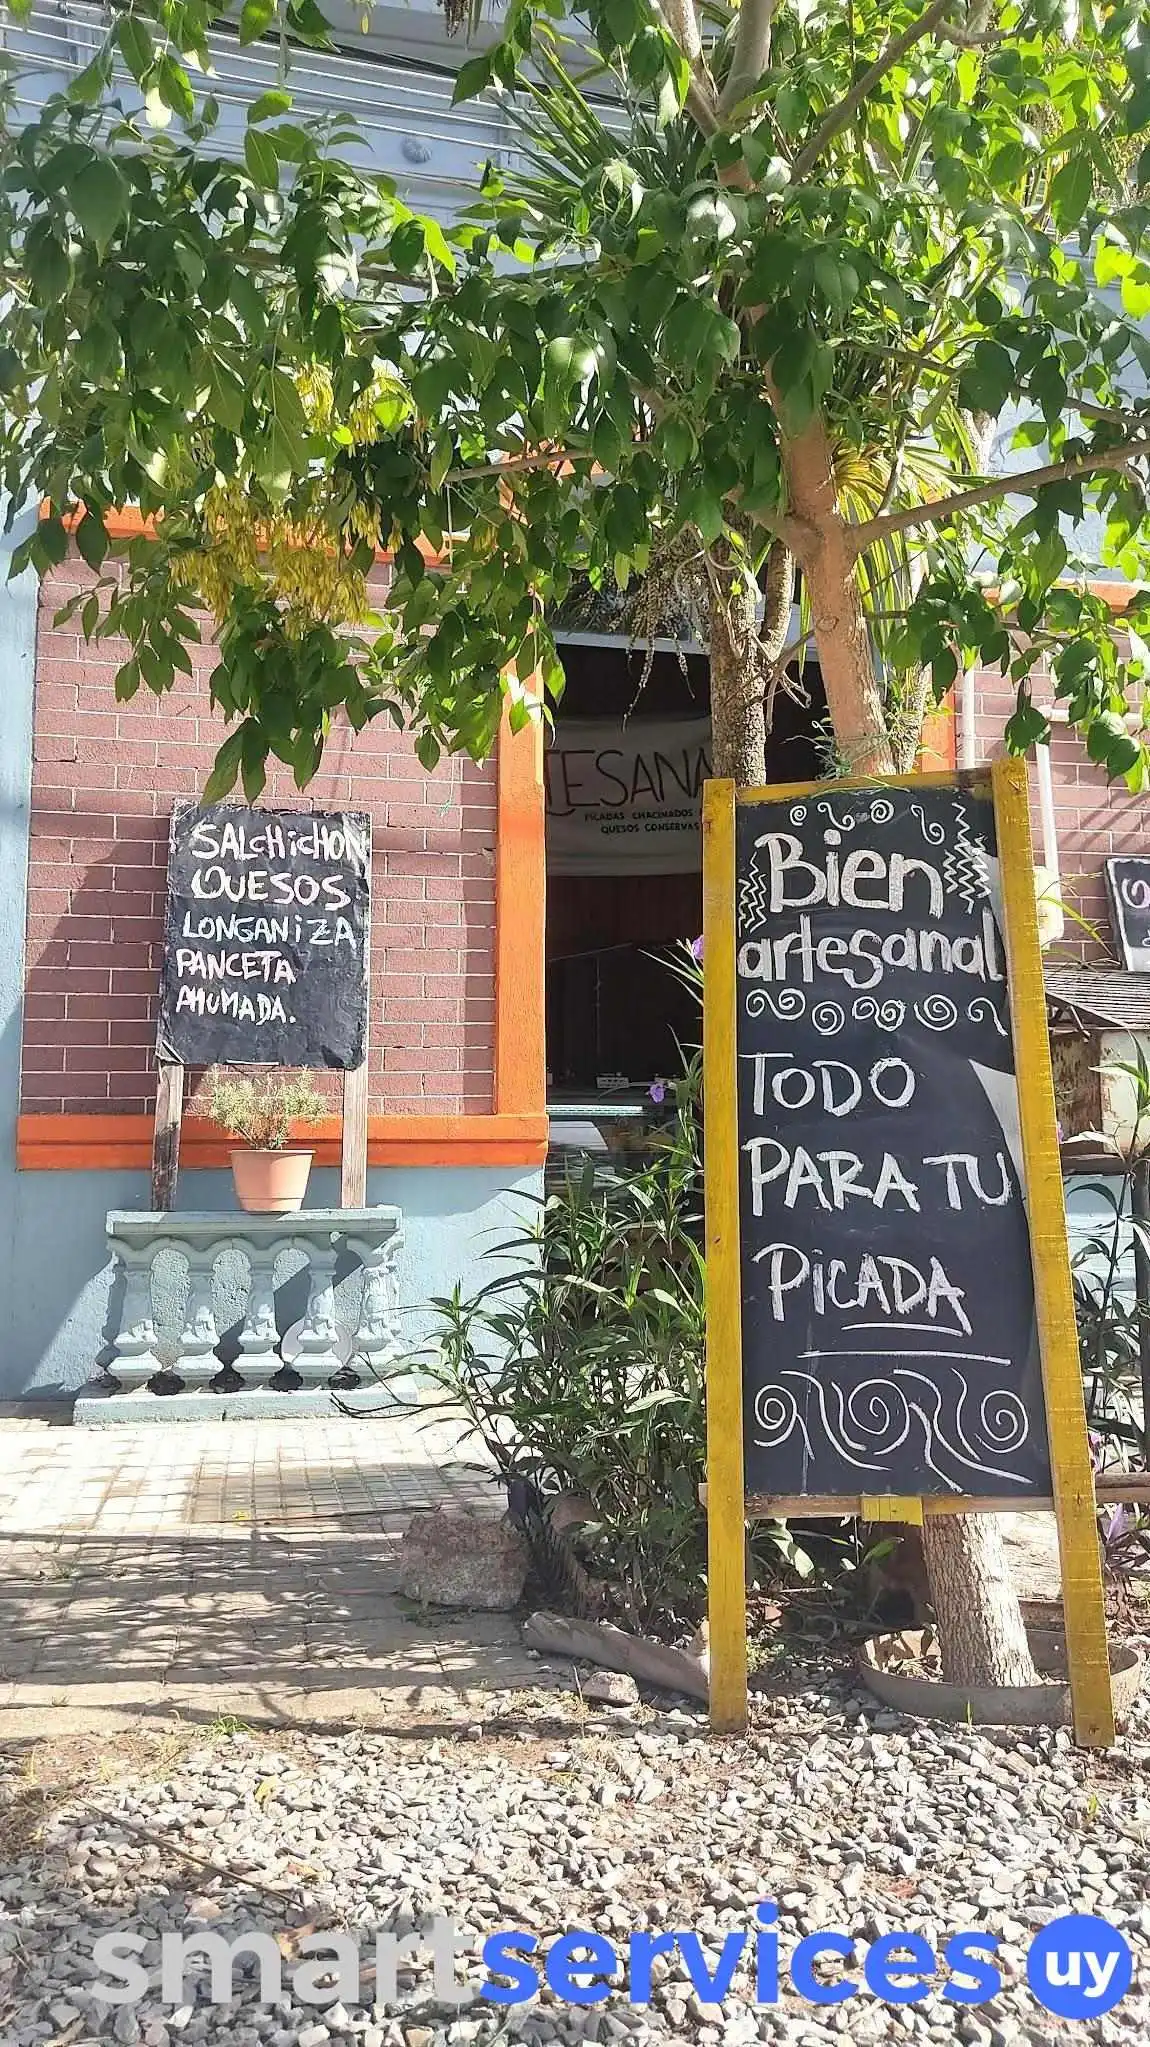 SALCHiCHON
QUESOS
LONGANiZA
PANCETA
AHUMADA.
TESANA
PICADAS CHACINADOS
QUESOS CONSERVAS
Bien
artesanal
TODO
PARA TU
PiCADA
smartservices uy